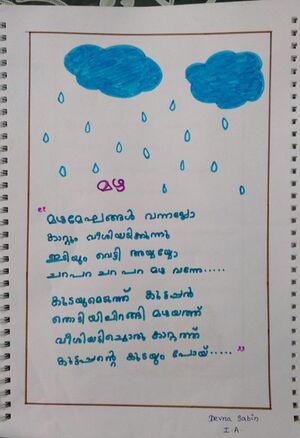 മഴ
"മഴമേഘങ്ങൾ വന്നല്ലോ
കാറ്റും വീശിയടിക്കുന്നു
ഇടിയും വെട്ടി അയ്യയ്യോ
ചറപറ ചറ പറ മഴ വന്നേ.....
കുടയുമെടുത്ത് കുട്ടപ്പൻ
തൊടിയിലിറങ്ങി മഴയത്ത്
വീശിയടിച്ചൊരു കാറ്റത്ത്
കുട്ടപ്പന്റെ കുടയും പോയ്....."
Devna Sabin
I.A.